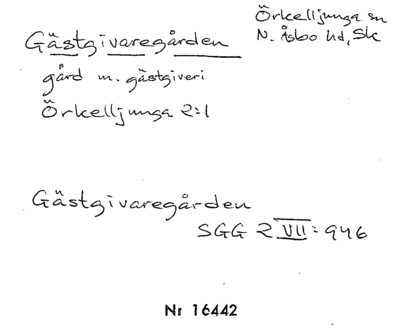 Örkelljunga sn
N. Åsbo hd, Sk
Gästgivaregården
gård m. gästgiveri
Örkelljunga 2:1
Gästgivaregården
SGG 2 VII: 946
Nr 16442